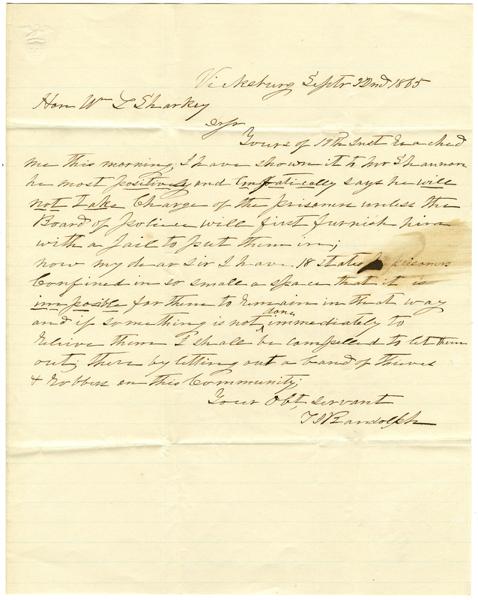 Vicksburg Septr 22nd 1865
Hon Wm L Sharkey
Sir
Yours of 19th Inst Reached
me this morning. I have shown it to Mr Shannon
he most positively and Emphatically says he will
not take Charge of the prisoners unless the
Board of Police will first furnish him
with a jail to put them in;
now my dear Sir I have 18 State prisoners
Confined in so small a space that it is
impossible for them to Remain in that way
and if something is not done immediately to
Relieve them I shall be compelled to let them
out, there by letting out a band of thieves
& Robbers on this Community;
Your Obt, Servant
Randolph